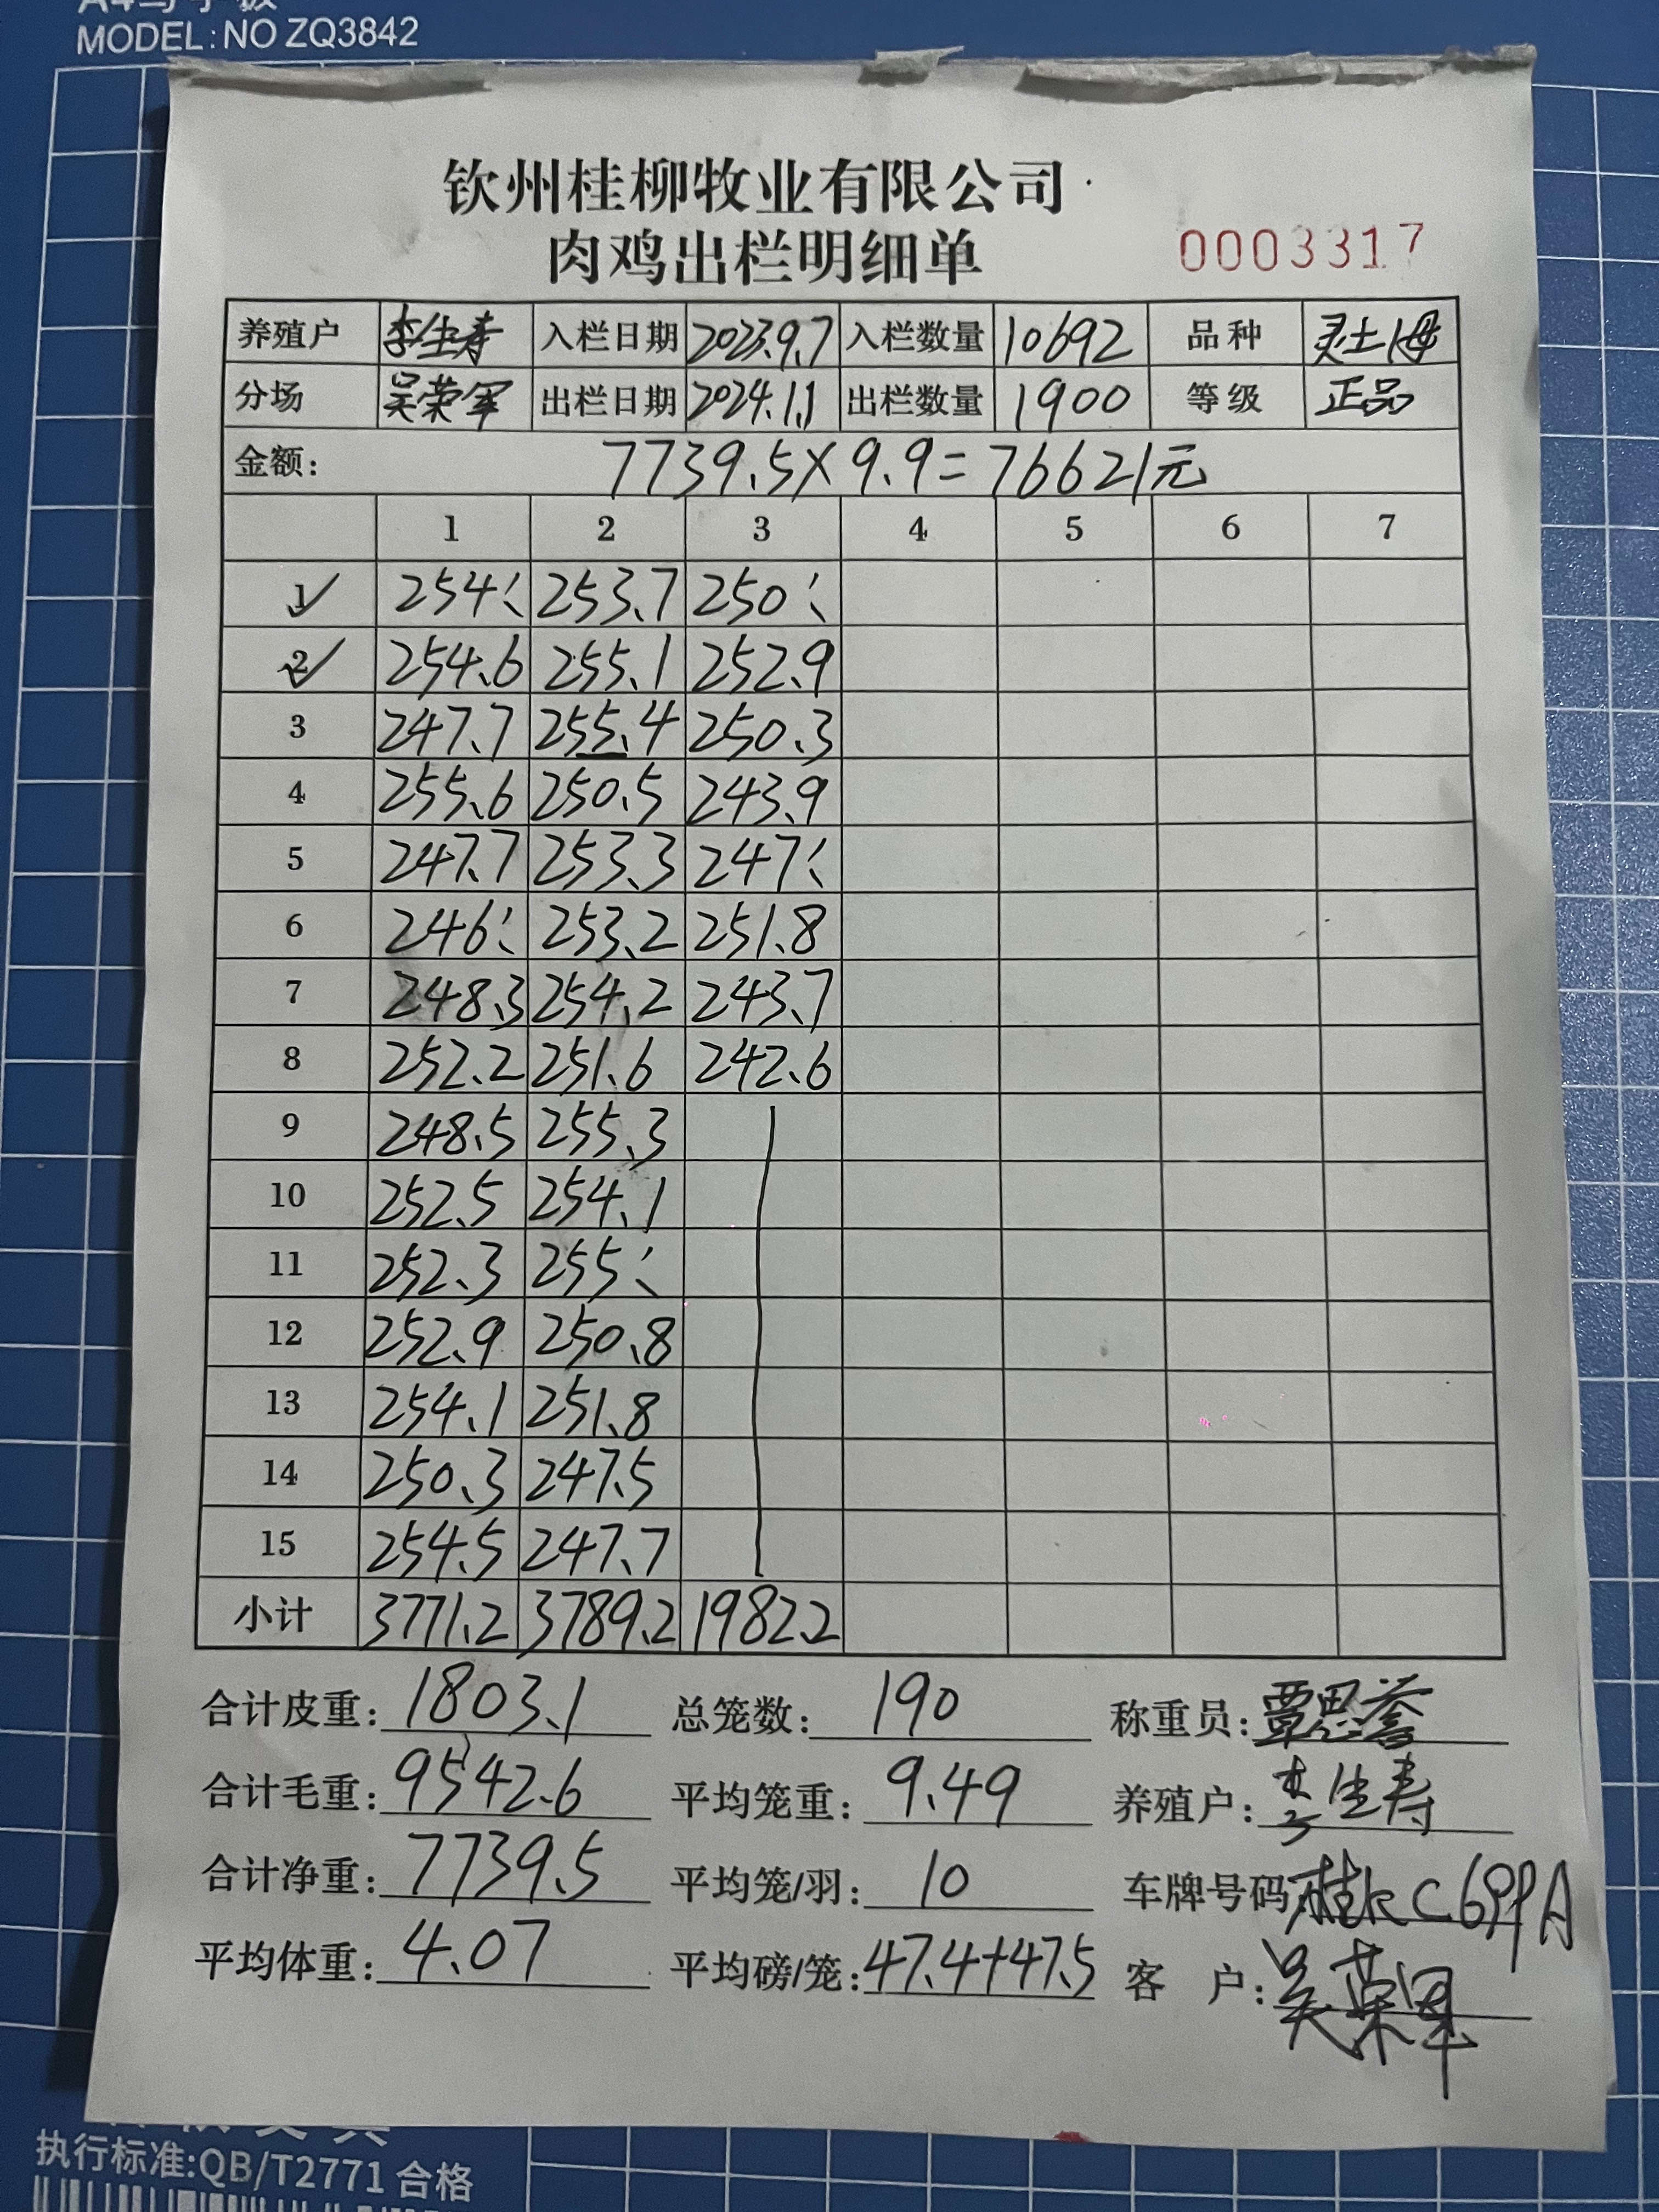 MODEL: NO ZQ3842
钦州桂柳牧业有限公司
肉鸡出栏明细单
0003317
养殖户 李生寿 入栏日期 2023.9.7 入栏数量 10692 品种 灵土母
分场 吴荣军 出栏日期 2024.1.1 出栏数量 1900 等级 正品
金额: 7739.5×9.9=76621元
1 2 3 4 5 6 7
1 254: 253.7 250:
2 254.6 255.1 252.9
3 247.7 255.4 250.3
4 255.6 250.5 243.9
5 247.7 253.3 247:
6 246: 253.2 251.8
7 248.3 254.2 243.7
8 252.2 251.6 242.6
9 248.5 255.3
10 252.5 254.1
11 252.3 255:
12 252.9 250.8
13 254.1 251.8
14 250.3 247.5
15 254.5 247.7
小计 3771.2 3789.2 1982.2
合计皮重: 1803.1 总笼数: 190 称重员: 覃思
合计毛重: 9542.6 平均笼重: 9.49 养殖户: 李生寿
合计净重: 7739.5 平均笼/羽: 10 车牌号码 桂KC699A
平均体重: 4.07 平均磅/笼: 47.4+47.5 客 户: 吴荣军
执行标准:QB/T2771 合格